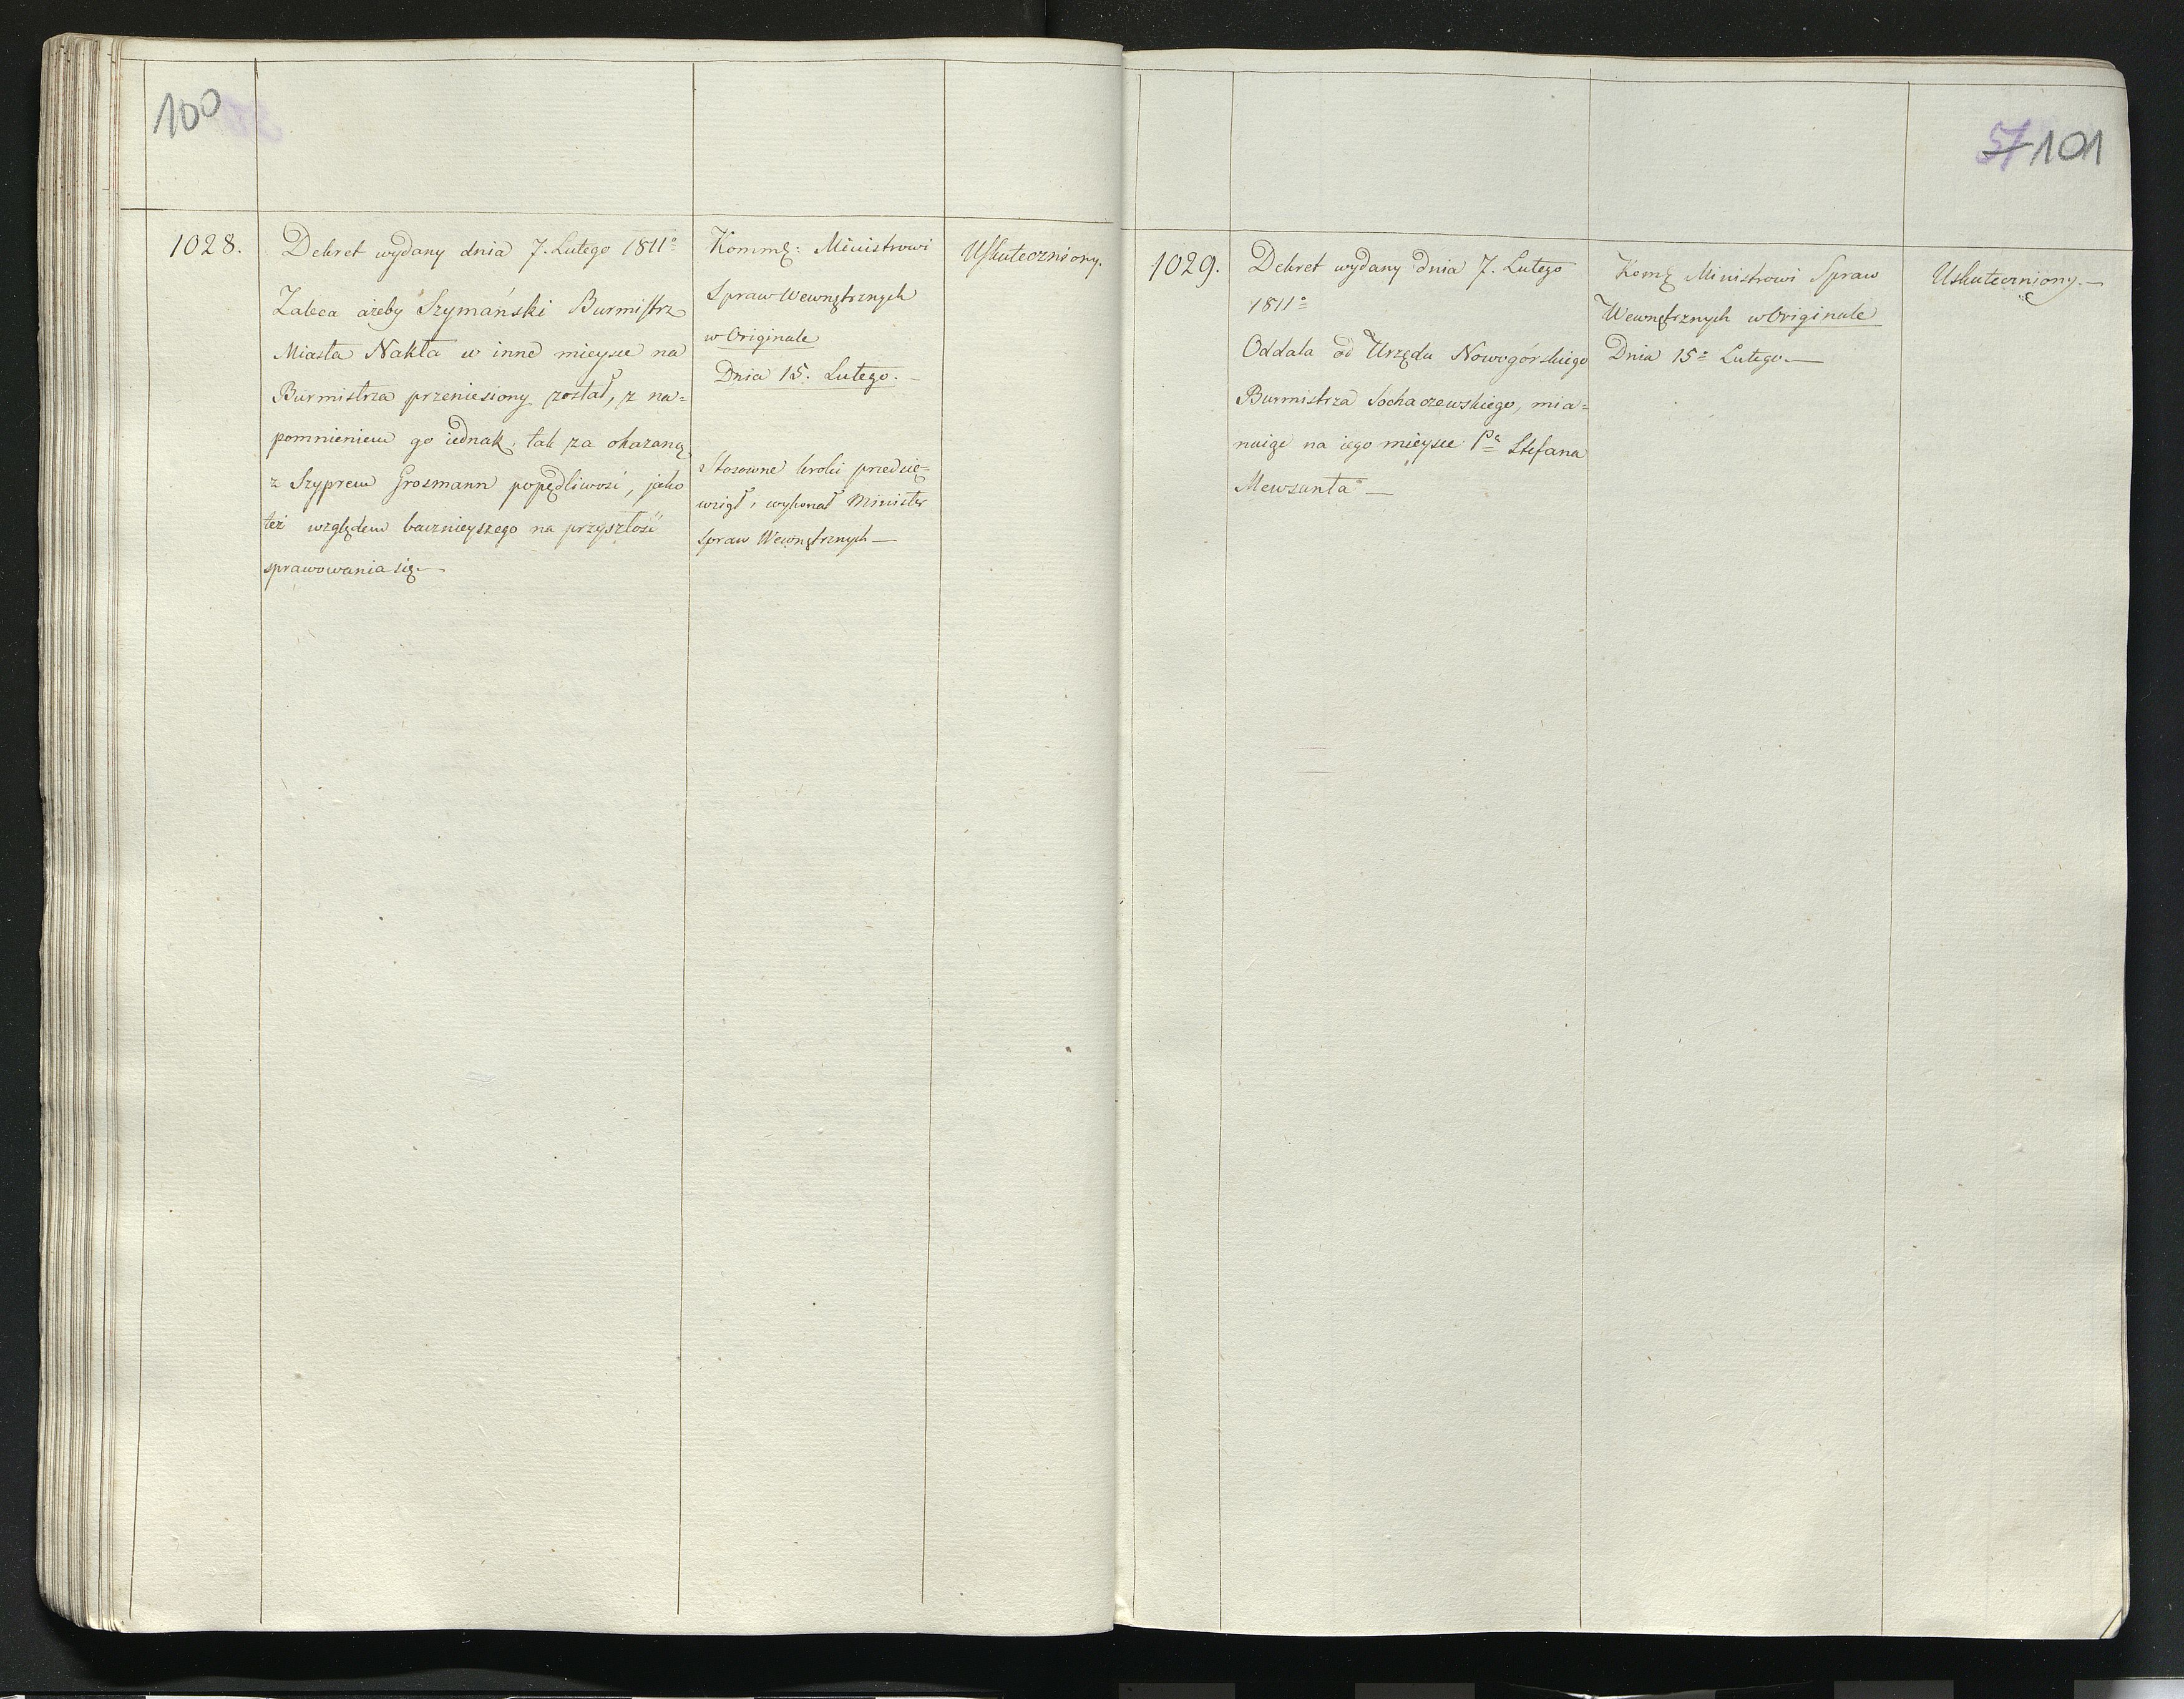 100
1028.
Dekret wydany dnia 7. Lutego 1811º
Zaleca ażeby Szymański Burmistrz
Miasta Nakła w inne mieysce na
Burmistrza przeniesiony został, z na=
pomnieniem go iednak, tak za okazaną
z Szyprem Grosmann popędliwość, jako
też względem bacznieyszego na przyszłość
sprawowania się.—
Kommę: Ministrowi
Spraw Wewnętrznych
w Originale
Dnia 15. Lutego. –
Stosowne kroki przedsię=
wziął i wykonał Minister
Spraw Wewnętrznych—
Uskuteczniony.
57 101
1029.
Dekret wydany dnia 7. Lutego
1811º
Oddala od Urzędu Nowogórskiego
Burmistrza Sochaczewskiego, mia=
nuiąc na iego mieysce Pª Stefana
Mewsanta —
Komę Ministrowi Spraw
Wewnętrznych w Originale
Dnia 15º Lutego.—
Uskuteczniony.—